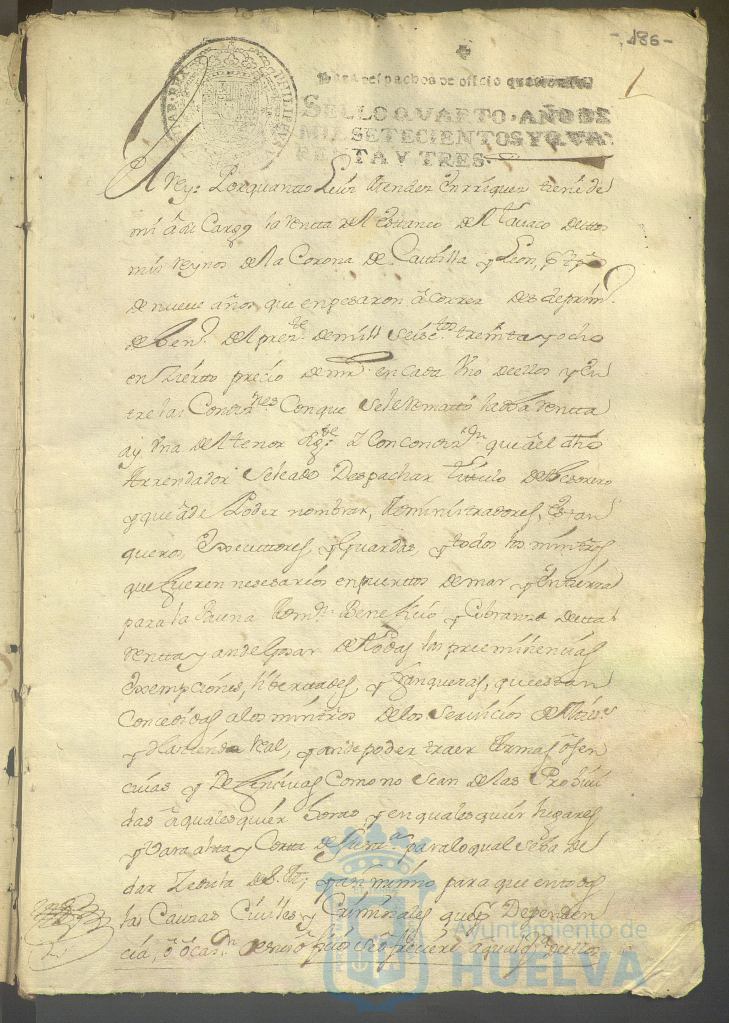 -,186-
1
Para despachos de oficio quatro mrs
SELLO QVARTO, AÑO DE
MIL SETECIENTOS Y QVA-
RENTA Y TRES.
Rey: Porquantto Luis Mendez Enrriquez tiene de
mi a su Cargo la rentta del Estanco del tavaco destos
mis reynos de la Corona de Casttilla y Leon, por tpo
de nueve años que enpesaron a correr desde prim.
de hen.º del pres.te de mill seisc.tos treinta y ocho
en zierto precio de mrs en cada Uno de ellos y en
tre las Condiz.nes Con que se le rematto la dha rentta
ay Una del tenor sig.te a Con condiz.on que a el dho
Arrendador se le a de Despachar titulo de thesorero
y que a de Poder nombrar, Administradores, Estan
queros, Executtores, y Guardas, y todos los ministros
que fueren nesesarios en puertos de mar y en tierra
para la buena Adm.on Beneficio y Cobranza de esta
rentta y an de Gosar de todas las preeminencias
Exempciones, libertades, y franquezas, que estan
Concedidas a los ministros de los servicios de Mill.s
y Hacienda real, y an de poder traer Armas ofen
civas y Defencivas Como no sean de las Prohivi
das a quales quier horas y en quales quier lugares
y Vara alta y Corta de Justiz.a para lo qual se ha de
dar Zedula de S. M., y asi mismo para que en todas
las Causas Civiles y Criminales que Dependen
cia, o ocaz.on
Ayuntamiento de
HUELVA